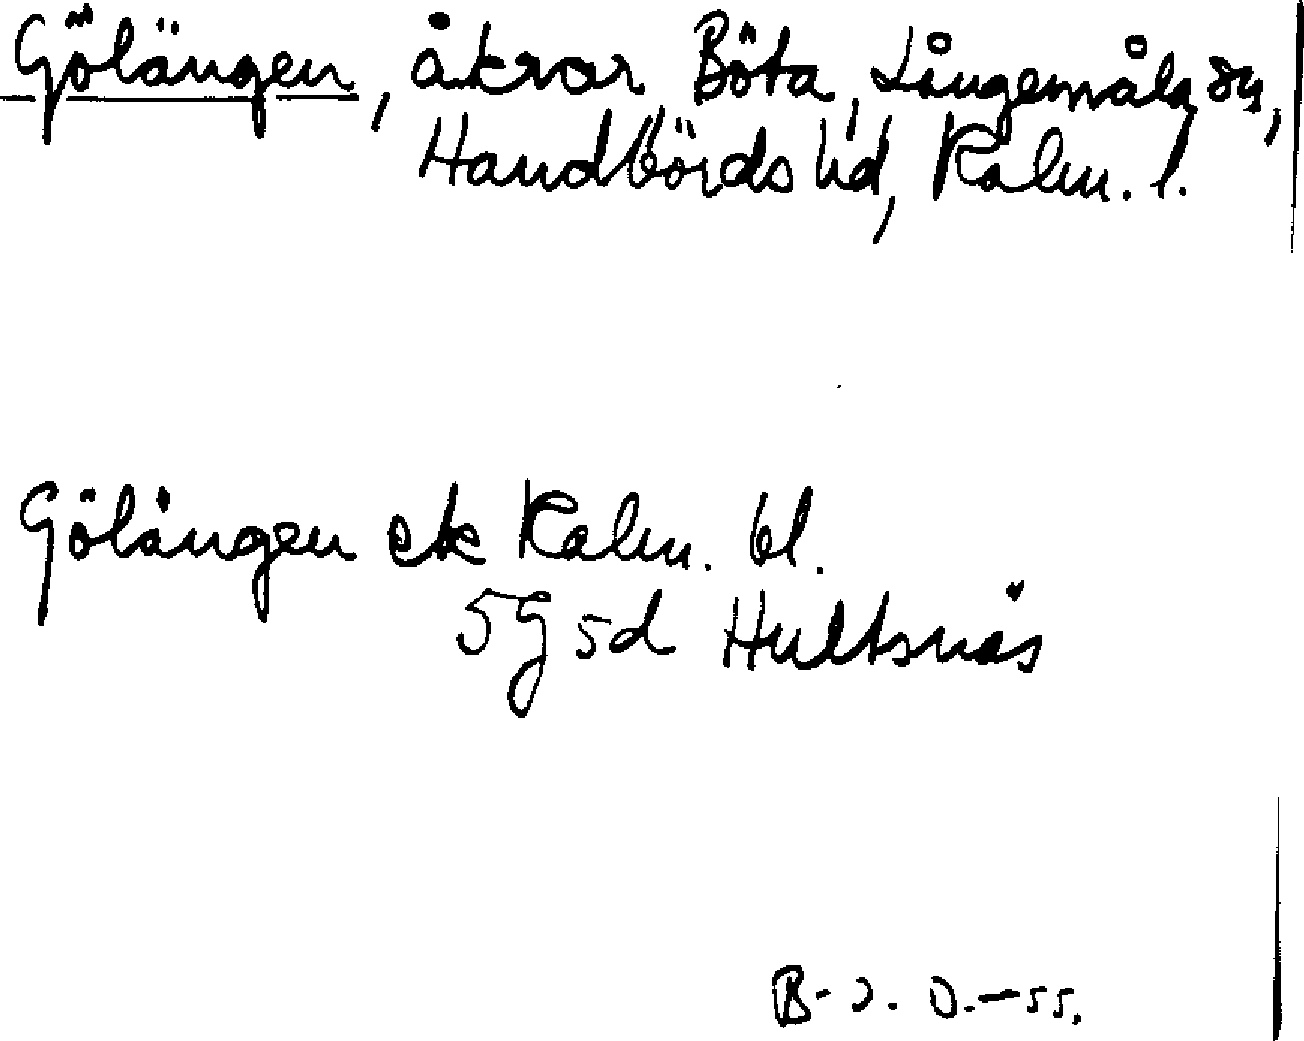 Gölängen, åkrar Böta, Långemåla sn,
Handbörds hd, Kalm. l.
Gölängen ek Kalm. bl.
5G 5d Hultsnäs
B-J. O.-55.